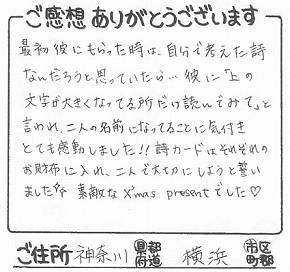 ご感想ありがとうございます
最初彼にもらった時は、自分で考えた詩
なんだろうと思っていたら…彼に「上の
文字が大きくなってる所だけ読んでみて」と
言われ、二人の名前になってることに気付き
とても感動しました!!詩カードはそれぞれの
お財布に入れ、二人で大切にしようと誓い
ました 素敵なX'mas presentでした♡
ご住所 神奈川 都道府県 横浜 市区町郡